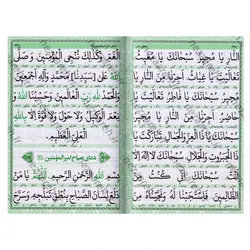 النَّارِ يَا مُجِيرُ سُبْحَانَكَ يَا مُغِيثُ
تَعَالَيْتَ يَا غِيَاثُ أَجِرْنَا مِنَ النَّارِ يَا
مُجِيرُ سُبْحَانَكَ يَا فَاطِرُ تَعَالَيْتَ يَا
حَاضِرُ أَجِرْنَا مِنَ النَّارِ يَا مُجِيرُ
سُبْحَانَكَ يَا ذَا الْعِزِّ وَالْجَمَالِ تَبَارَكْتَ يَا
ذَا الْجَبَرُوتِ وَالْجَلَالِ سُبْحَانَكَ لَا إِلٰهَ
إِلَّا أَنْتَ سُبْحَانَكَ إِنِّي كُنْتُ مِنَ
الظَّالِمِينَ فَاسْتَجَبْنَا لَهُ وَنَجَّيْنَاهُ مِنَ
الْغَمِّ وَكَذٰلِكَ نُنْجِي الْمُؤْمِنِينَ وَصَلَّى
اللهُ عَلَى [سَيِّدِنَا] مُحَمَّدٍ وَآلِهِ أَجْمَعِينَ
وَالْحَمْدُ لِلّٰهِ رَبِّ الْعَالَمِينَ وَحَسْبُنَا اللهُ
وَنِعْمَ الْوَكِيلُ وَلَا حَوْلَ وَلَا قُوَّةَ إِلَّا بِاللهِ
الْعَلِيِّ الْعَظِيمِ.
دعای صباح امیر المؤمنین
بِسْمِ اللهِ الرَّحْمٰنِ الرَّحِيمِ اللّٰهُمَّ يَا
مَنْ دَلَعَ لِسَانَ الصَّبَاحِ بِنُطْقِ تَبَلُّجِهِ وَسَرَّحَ